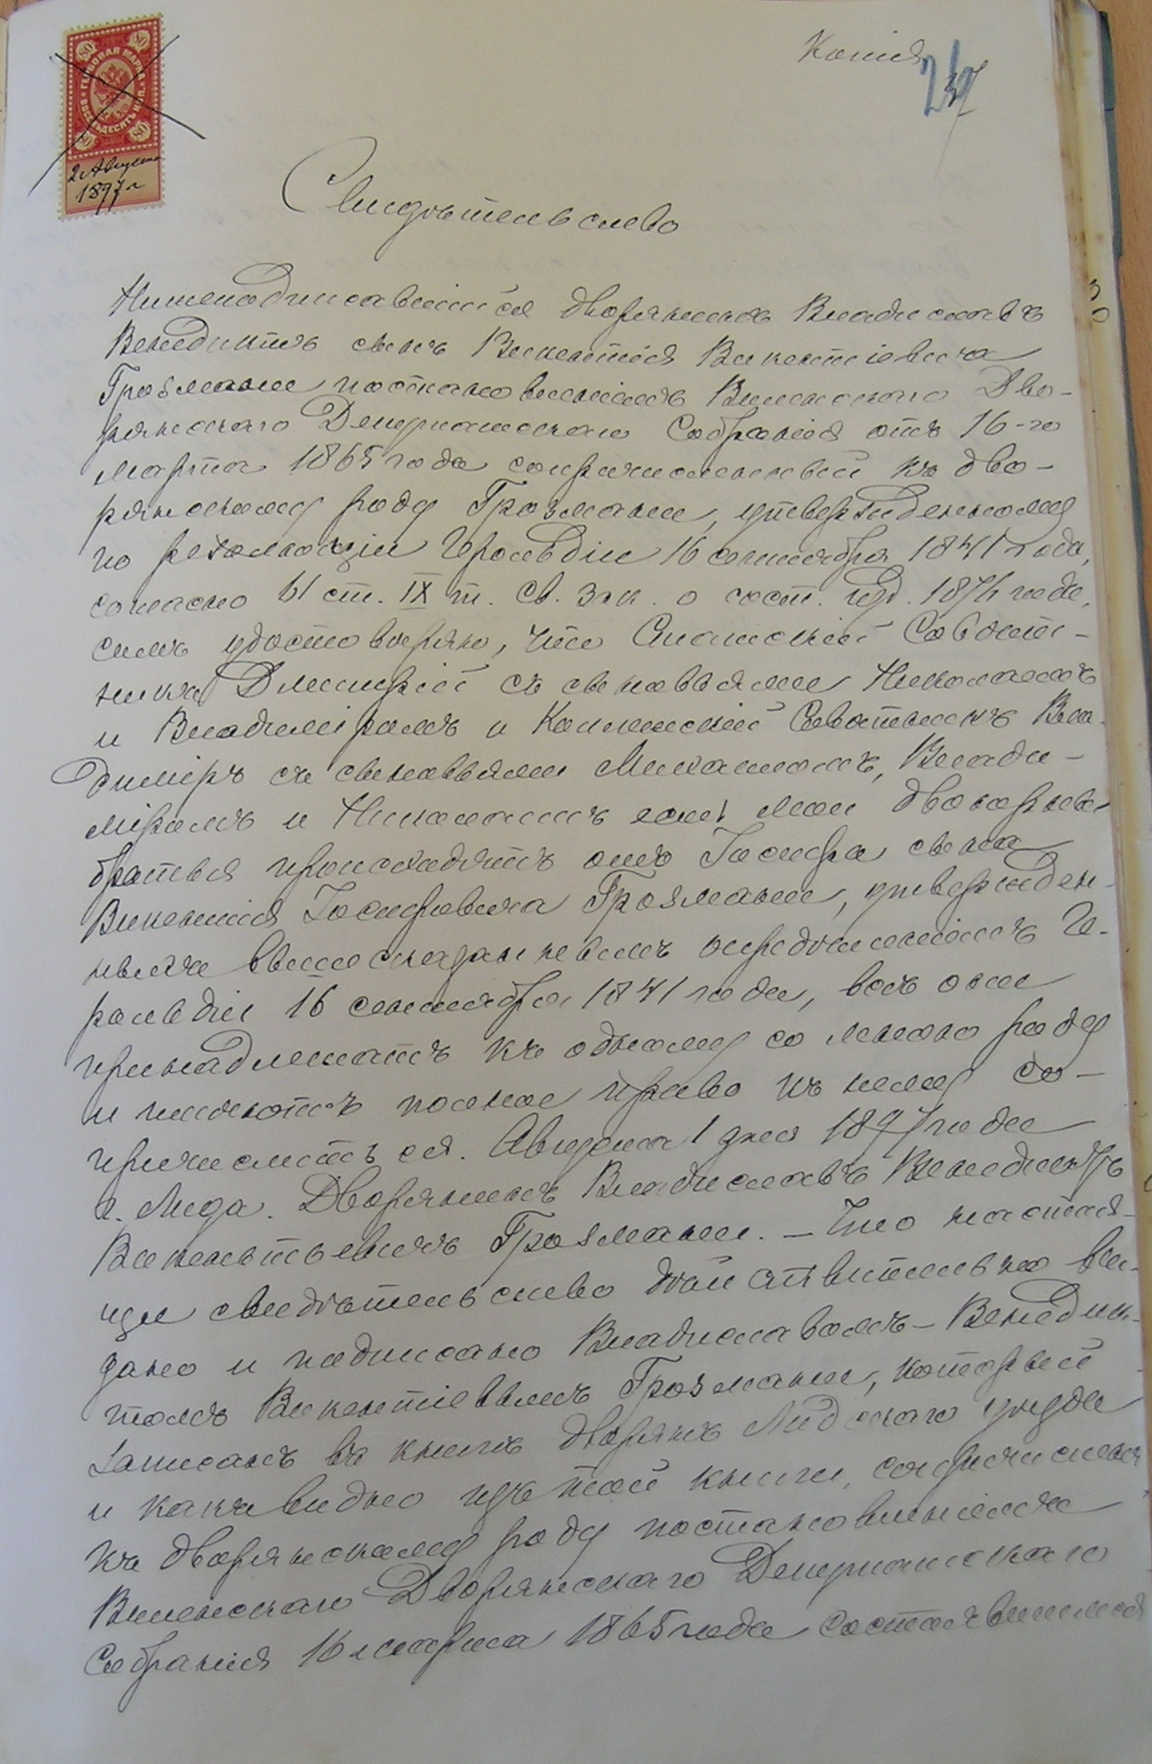 Копія
237
80 80
ГЕРБОВАЯ МАРКА
ВОСЕМЬДЕСЯТЪ КОП.
80 80
2 Августа
1897 г
Свидѣтельство
Нижеподписавшійся дворянинъ Владиславъ
Венедиктъ сынъ Викентія Викентіевича
Грозмани постановленіемъ Виленскаго Дво-
рянскаго Депутатскаго Собранія отъ 16-го
марта 1865 года сопричисленный къ дво-
рянскому роду Грозмани, утвержденному
по резолюціи Герольдіи 16 сентября 1841 года,
согласно 61 ст. IX т. Св. Зак. о сост. изд. 1876 года,
симъ удостовѣряю, что Статскій Совѣт-
никъ Дмитрій съ сыновьями Николаемъ
и Владиміромъ и Коллежскій Совѣтникъ Вла-
диміръ съ сыновьями Михаиломъ, Влади-
міромъ и Николаемъ мои двоюродные
братья происходятъ отъ Іосифа сына
Викентія Іосифовича Грозмани, утвержден-
ныхъ вышесказаннымъ опредѣленіемъ Ге-
рольдіи 16 сентября 1841 года, всѣ они
принадлежатъ къ одному со мною роду
и имѣютъ полное право къ нему со-
причислиться. Августа 1 дня 1897 года
г. Лида. Дворянинъ Владиславъ Венедиктъ
Викентьевичъ Грозмани. – Что настоя-
щее свидѣтельство дѣйствительно вы-
дано и подписано Владиславомъ-Венедик-
томъ Викентіевымъ Грозмани, который
записанъ въ книгѣ дворянъ Лидскаго уѣзда
и какъ видно изъ той книги, сопричисленъ
къ дворянскому роду постановленіемъ
Виленскаго Дворянскаго Депутатскаго
Собранія 16 марта 1865 года состоявшимся